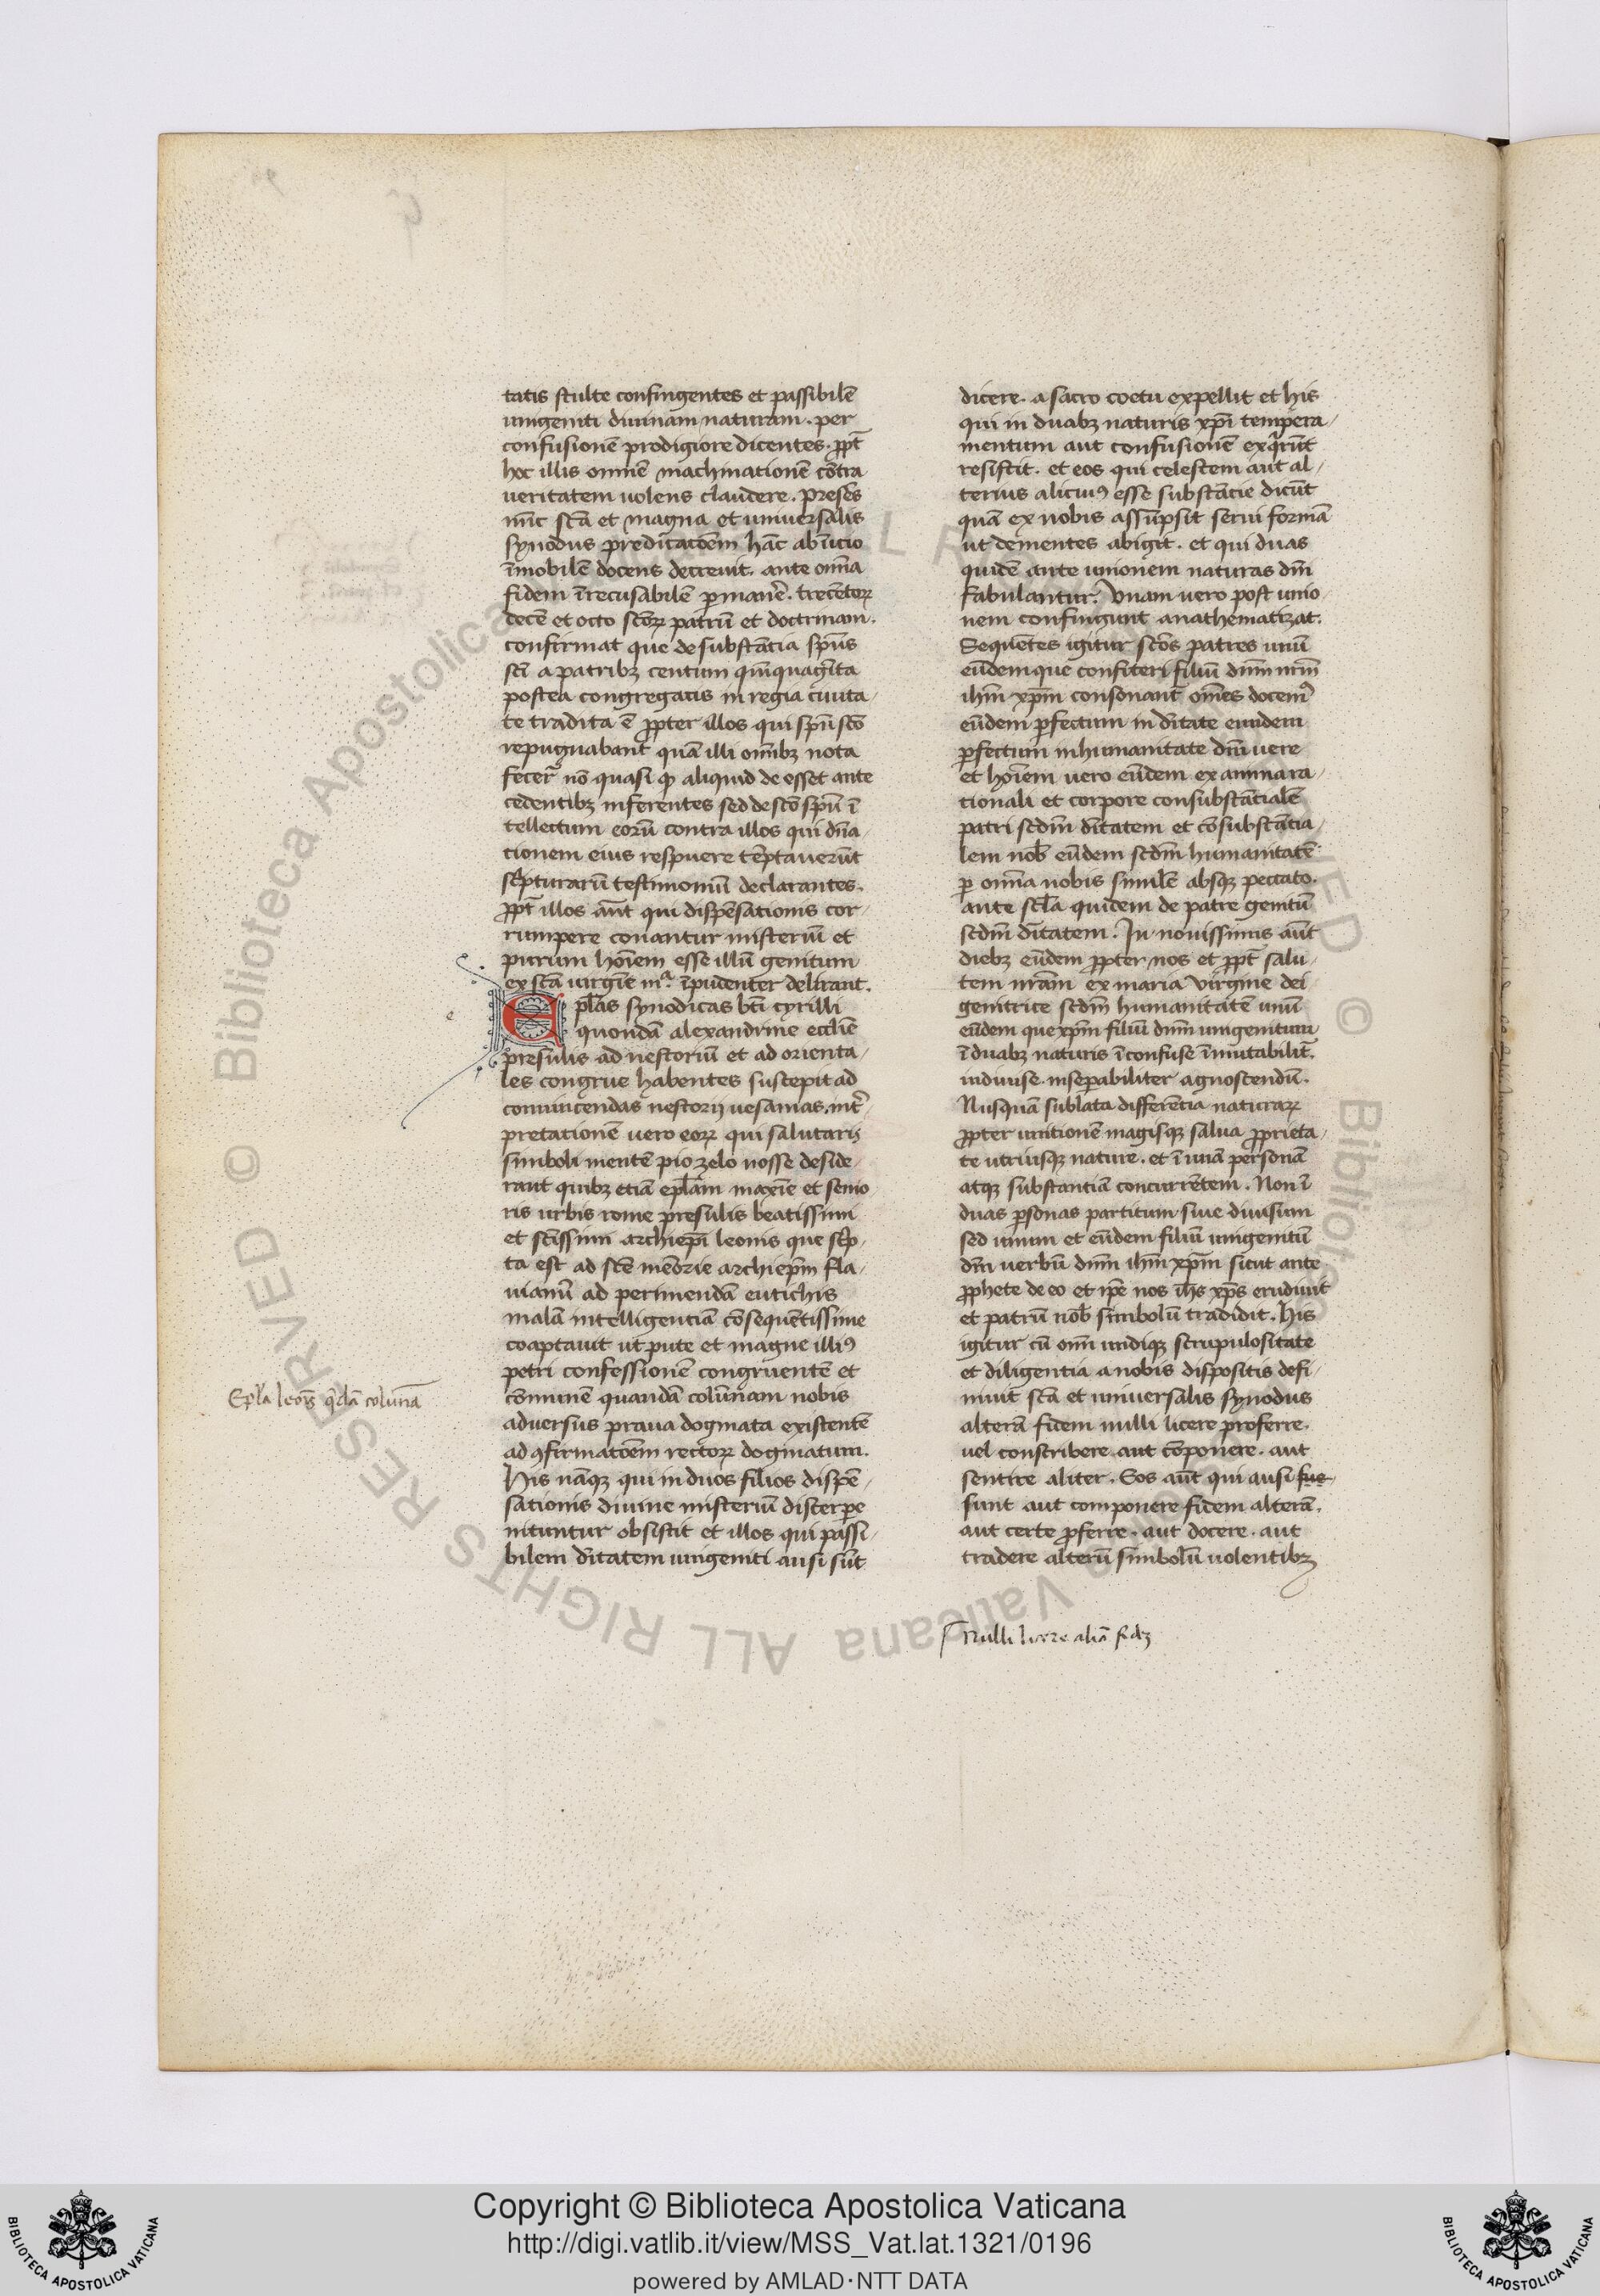 tatis stulte confingentes et passibilē
unigeniti diuinam naturam. per
confusionē prodigiore dicentes. ꝓpt̄
hoc illis omnē machinationē cōtra
ueritatem uolens claudere. presēs
nūc scā et magna et uniuersalis
synodus predicatōem hāc ab īicio
īmobilē docens decreuit. ante om̄ia
fidem īrecusabilē ꝑmanē. trecētoꝝ
decē et octo scōꝝ patrū et doctrinam.
confirmat que de substātia spūs
scī a patribꝫ centum qīnquagīta
postea congregatis in regia ciuita-
te tradita ē ꝓpter illos qui spūscō
repugnabant quā illi om̄ibꝫ nota
fecer̄ nō quasi ꝙ aliquid de esset ante
cedentibꝫ inferentes sed de scō spū ī
tellectum eorū contra illos qui dn̄a-
tionem eius respuere tēptauerūt
scͥpturarū testimoniū declarantes.
ꝓpt̄ illos aūt qui dispēsationis cor-
rumpere conantur misteriū et
purum hoīem esse illū genitum
ex scā uirgīe mͣ. īpudenter delirant.
e
Epl̄as synodicas btī cyrilli
quondā alexandrine eccliē
presulis ad nestoriū et ad orienta-
les congrue habentes suscepit ad
conuincendas nestorij uesanias. int̄-
pretationē uero eoꝝ qui salutaris
simboli mentē pio zelo nosse deside-
rant quibꝫ etiā epl̄am maxīe et senio
ris urbis rome presulis beatissimi
et scīssimi archiepī leonis que scͥp-
ta est ad scē mēorie archiepm̄ fla-
uianū ad perimendā eutichis
malā intelligentiā cōsequētissime
coaptauit ut pute et magne illiꝰ
petri confessionē congruentē et
cōmunē quandā colūnam nobis
aduersus praua dogmata existentē
ad ꝯfirmatōem rectoꝝ dogmatum.
His nāqꝫ qui in duos filios dispē-
sationis diuine misteriū discerpe
nituntur obsistit et illos qui passi-
bilem dītatem unigeniti ausi sūt
Epl̄a leoīs qͣdā colunā
dicere. a sacro coetu expellit et his
qui in duabꝫ naturis xpī tempera-
mentum aut confusionē exqͥrūt
resistit. et eos qui celestem aut al-
terius alicuiꝰ esse substātie dicūt
quā ex nobis assūpsit serui formā
ut dementes abigit. et qui duas
quidē ante unionem naturas dm̄
fabulantur. Vnam uero post unio
nem confingunt anathematizat.
Sequētes igitur scōs patres unū
eūdemque confiteri filiū dnm̄ nrm̄
ihm̄ xpm̄ consonant̄ om̄es docemꝰ
eūdem ꝑfectum in dītate eundem
ꝑfectum in humanitate dm̄ uere
et hoīem uero eūdem ex anima ra-
tionali et corpore consubstātialē
patri scdm̄ dītatem et cōsubstātia-
lem nob̄ eūdem scdm̄ humanitatē
ꝑ om̄ia nobis similē absqꝫ peccato.
ante scl̄a quidem de patre genitū
scdm̄ dītatem. In nouissimis aūt
diebꝫ eūdem ꝓpter nos et ꝓpt̄ salu-
tem nrām ex maria Virgine dei
genitrice scdm̄ humanitatēm unū
eūdem que xpm̄ filiū dnm̄ unigenitum
ī duabꝫ naturis īconfuse īmutabilit̄.
indiuise. inseꝑabiliter agnoscendū.
Nusquā sublata differētia naturaꝝ
ꝓpter unitionē magisqꝫ salua ꝓprieta-
te utriusqꝫ nature. et ī unā personā
atqꝫ substantiā concurrētem. Non ī
duas ꝑsonas partitum siue diuisum
sed unum et eūdem filiū unigenitū
dm̄ uerbū dnm̄ ihm̄ xpm̄ sicut ante
ꝓphete de eo et ip̄e nos ih̄s xp̄s erudiuit
et patrū nob̄ simbolū tradidit. His
igitur cū om̄i undiqꝫ scrupulositate
et diligentia a nobis dispositis defi-
niuit scā et uniuersalis synodus
alterā fidem nulli licere proferre.
uel conscribere. aut cōponere. aut
sentire aliter. Eos aūt qui ausi fue-
sunt aut componere fidem alterā.
aut certe ꝓferre. aut docere. aut
tradere alterū simbolū uolentibꝫ
Nulli licere aliā fidꝫ
© Biblioteca Apostolica Vaticana ALL RIGHTS RESERVED
Copyright © Biblioteca Apostolica Vaticana
http://digi.vatlib.it/view/MSS_Vat.lat.1321/0196
powered by AMLAD·NTT DATA
BIBLIOTECA APOSTOLICA VATICANA
BIBLIOTECA APOSTOLICA VATICANA